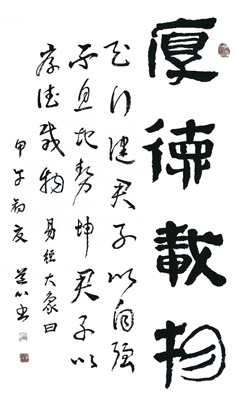 厚德載物
天行健君子以自強
不息地勢坤君子以
厚德載物 易經大象曰
甲午初夏 书